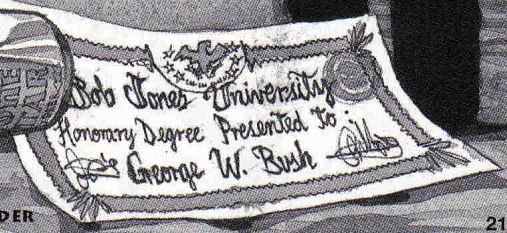 Bob Jones University
Honorary Degree Presented To
George W. Bush
DER
21